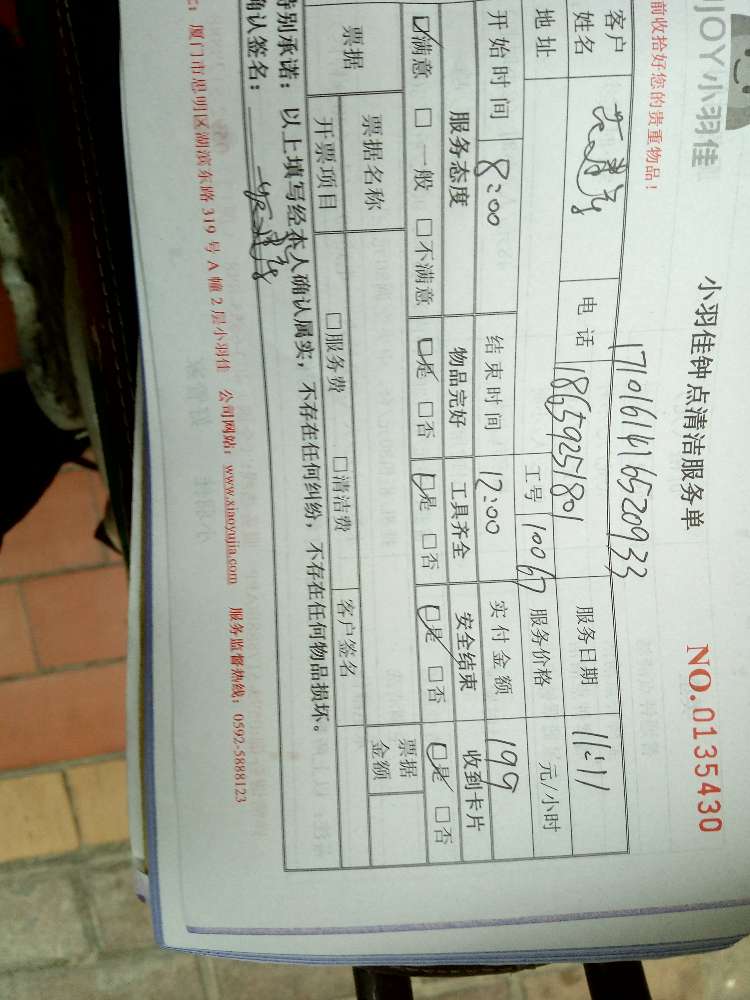 JOY小羽佳
前收拾好您的贵重物品！
小羽佳钟点清洁服务单
NO.0135430
1710161416520933
客户姓名 电话 18659251801 服务日期 11:11
地址 工号 10067 服务价格 元/小时
开始时间 8:00 结束时间 12:00 实付金额 199
服务态度 物品完好 工具齐全 安全结束 收到卡片
☑满意 □一般 □不满意 ☑是 □否 ☑是 □否 ☑是 □否 ☑是 □否
票据 票据名称 □服务费 □清洁费 票据金额
开票项目 客户签名
特别承诺：以上填写经本人确认属实，不存在任何纠纷，不存在任何物品损坏。
确认签名：
：厦门市思明区湖滨东路 319 号 A 幢 2 层小羽佳 公司网站：www.xiaoyujia.com 服务监督热线：0592-5888123